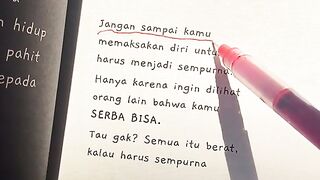 n hidup
pahit
epada
Jangan sampai kamu
memaksakan diri untu
harus menjadi sempurna.
Hanya karena ingin dilihat
orang lain bahwa kamu
SERBA BISA.
Tau gak? Semua itu berat,
kalau harus sempurna